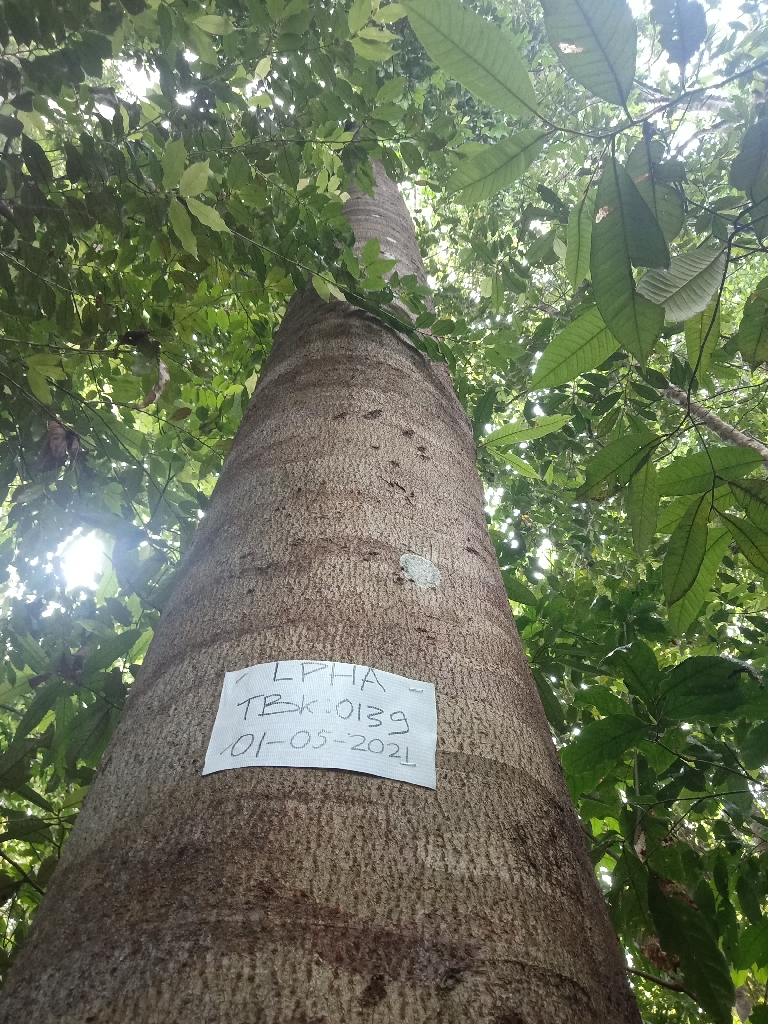 LPHA
TBK-0139
01-05-2021